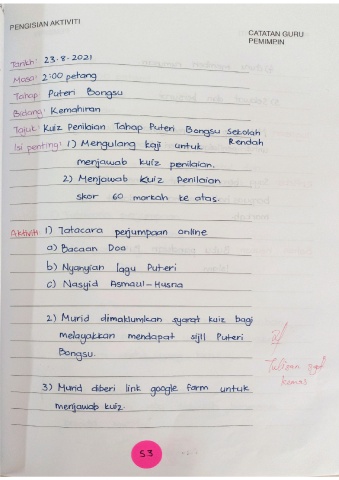 PENGISIAN AKTIVITI
CATATAN GURU
PEMIMPIN
Tarikh: 23.8.2021
Masa: 2:00 petang
Tahap: Puteri Bongsu
Bidang: Kemahiran
Tajuk: Kuiz Penilaian Tahap Puteri Bongsu Sekolah
Rendah
Isi penting: 1) Mengulang kaji untuk
menjawab kuiz penilaian.
2) Menjawab Kuiz Penilaian
skor 60 markah ke atas.
Aktiviti 1) Tatacara perjumpaan online
a) Bacaan Doa
b) Nyanyian lagu Puteri
c) Nasyid Asmaul-Husna
2) Murid dimaklumkan syarat kuiz bagi
melayakkan mendapat sijil Puteri
Bongsu.
3) Murid diberi link google form untuk
menjawab kuiz.
Tulisan
kemas
53